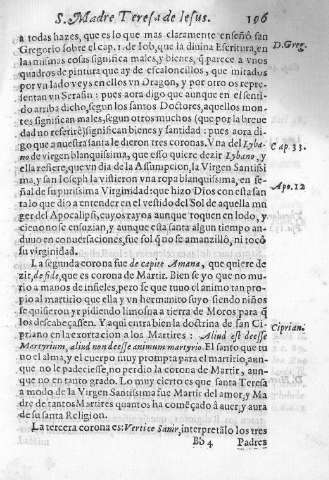 S. Madre Teresa de Iesus. 196
a todas hazes, que es lo que mas claramente enseñó san
Gregorio sobre el cap. 1. de Iob, que la diuina Escritura, en
las mismas cosas significa males, y bienes, q̃ parece a vnos
quadros de pintura que ay de escaloncillos, que mirados
por vn lado veys en ellos vn Dragon, y por otro os repre-
sentan vn Serafin: pues aora digo que aunque en el senti-
do arriba dicho, segun los santos Doctores, aquellos mon-
tes significan males, segun otros muchos (que por la breue
dad no refiere) significan bienes y santidad: pues aora di-
go que a nuestra santa le dieron tres coronas. Vna del Lyba-
no de virgen blanquissima, que esso quiere dezir Lybano, y
ella refiere, que vn dia de la Assumpcion, la Virgen Santiss
ma, y san Ioseph la vistieron vna ropa blanquissima, en se-
ñal de su purissima Virginidad: que hizo Dios con esta san
ta lo que dio a entender en el vestido del Sol de aquella mu
ger del Apocalipsi, cuyos rayos aunque toquen en lodo, y
cieno no se ensuzian, y aunque esta santa algun tiempo an-
duuo en conuersaciones, fue sol q̃ no se amanzilló, ni tocó
su virginidad.
La segunda corona fue de capite Amana, que quiere de-
zir, de fide, que es corona de Martir. Bien se yo que no mu-
rio a manos de infieles, pero se que tuuo el animo tan pro-
pio al martirio que ella y vn hermanito suyo siendo niños
se quisieron yr pidiendo limosna a tierra de Moros para q̃
los descabeçassen. Y aqui entra bien la doctrina de san Ci-
priano en la exortacion a los Martires: Aliud est deesse
Martyrium, aliud non deesse animum martyrio. El santo que tu
uo el alma, y el cuerpo muy prompta para el martirio, aun-
que no le padeciesse, no perdio la corona de Martir, aun-
que no en tanto grado. Lo muy cierto es que santa Teresa
a modo de la Virgen Santissima fue Martir del amor, y Ma
dre de tantos Martires quantos ha começado à auer, y aura
de su santa Religion.
La tercera corona es: Vertice Sanir, interpretalo los tres
Bb 4 Padres
D. Greg.
Cap. 33.
Apo. 12
Ciprian.